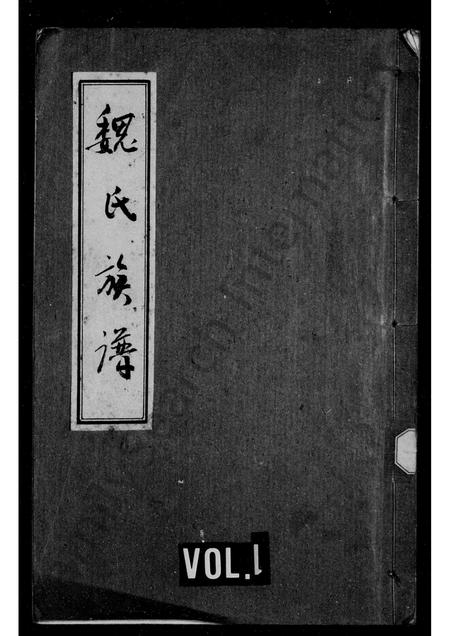 魏氏族譜
VOL.1